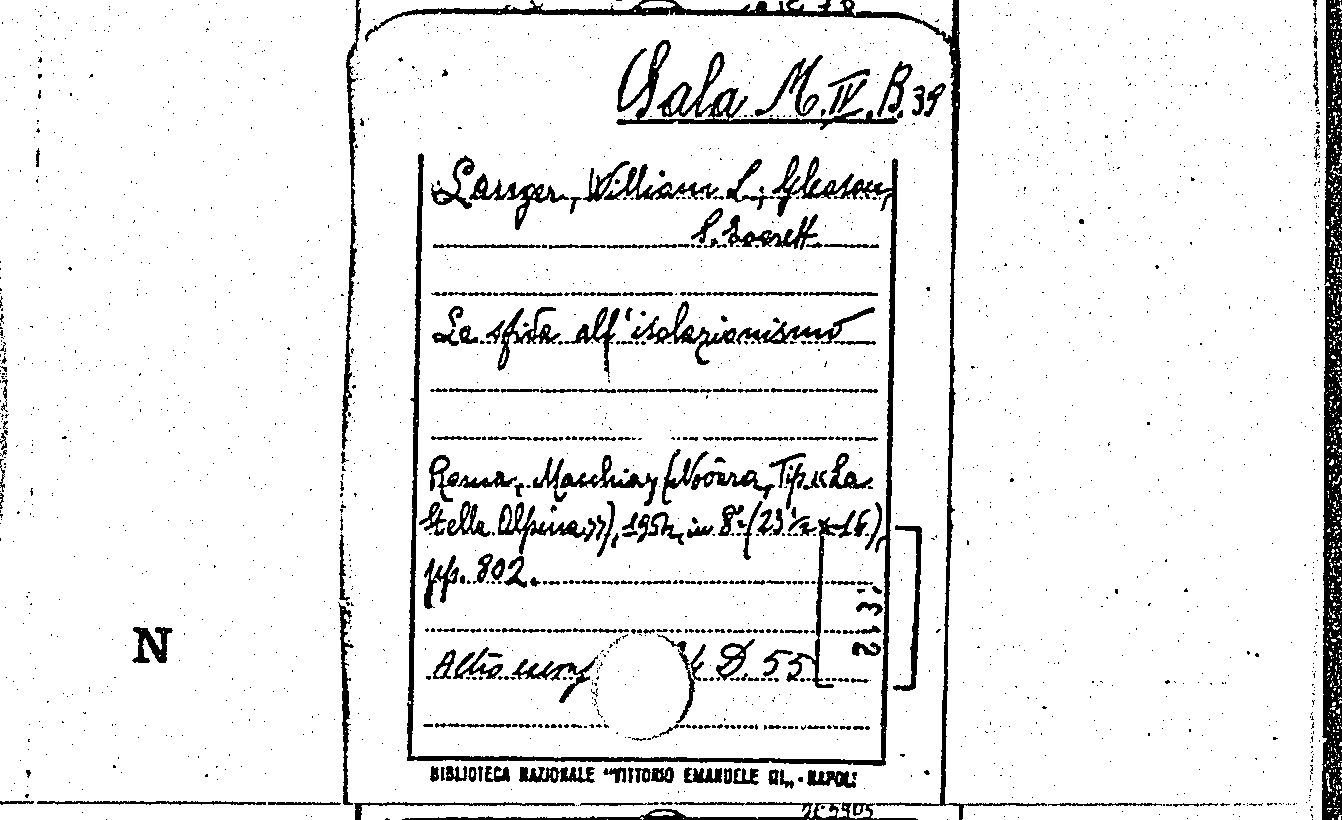 Sala M.IV.B.39
Langer, William L.; Gleason,
S. Everett
La sfida all'isolazionismo
Roma, Macchia, (Novara, Tip. «La
Stella Alpina»), 1954, in 8° (23 x 16),
pp. 802.
Altro esemp D. 55
N
BIBLIOTECA NAZIONALE "VITTORIO EMANUELE III„ - NAPOLI